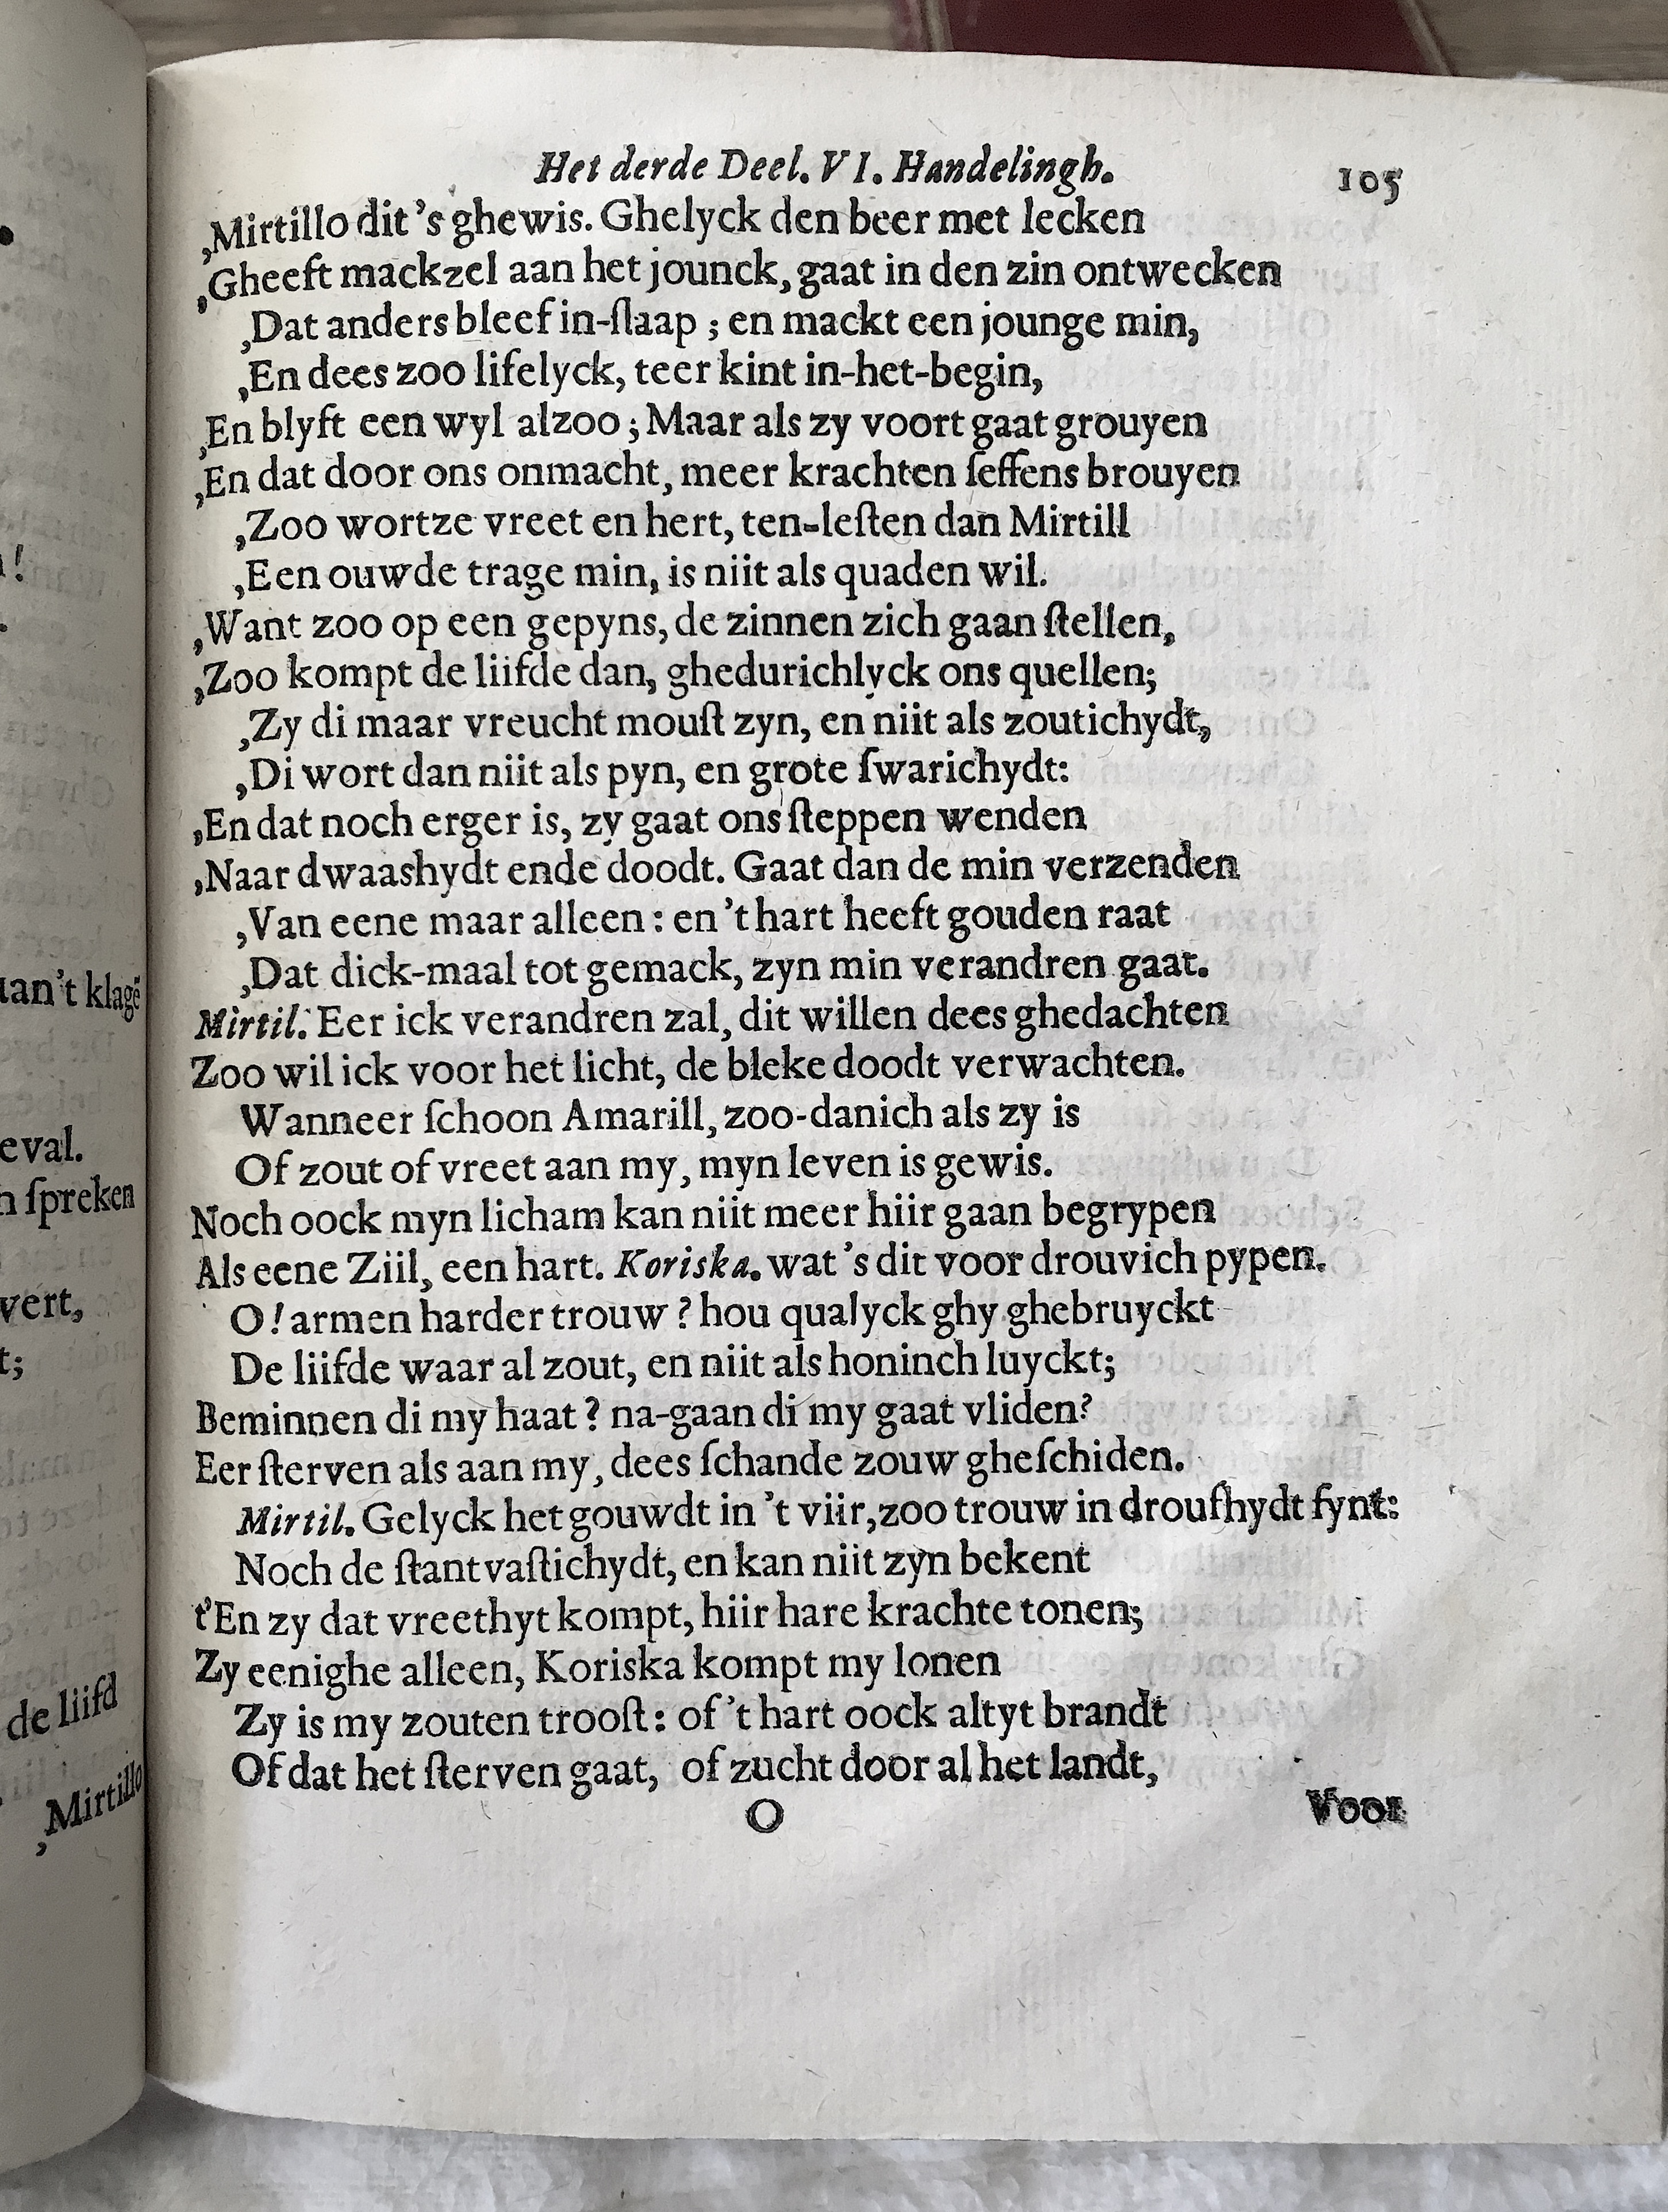 Het derde Deel. VI. Handelingh. 105
,Mirtillo dit 's ghewis. Ghelyck den beer met lecken
,Gheeft mackzel aan het jounck, gaat in den zin ontwecken
,Dat anders bleef in-ſlaap ; en mackt een jounge min,
,En dees zoo lifelyck, teer kint in-het-begin,
,En blyft een wyl alzoo ; Maar als zy voort gaat grouyen
,En dat door ons onmacht, meer krachten ſeffens brouyen
,Zoo wortze vreet en hert, ten-leſten dan Mirtill
,Een ouwde trage min, is niit als quaden wil.
,Want zoo op een gepyns, de zinnen zich gaan ſtellen,
,Zoo kompt de liifde dan, ghedurichlyck ons quellen;
,Zy di maar vreucht mouſt zyn, en niit als zoutichydt,
,Di wort dan niit als pyn, en grote ſwarichydt:
,En dat noch erger is, zy gaat ons ſteppen wenden
,Naar dwaashydt ende doodt. Gaat dan de min verzenden
,Van eene maar alleen : en 't hart heeft gouden raat
,Dat dick-maal tot gemack, zyn min verandren gaat.
Mirtil. Eer ick verandren zal, dit willen dees ghedachten
Zoo wil ick voor het licht, de bleke doodt verwachten.
Wanneer ſchoon Amarill, zoo-danich als zy is
Of zout of vreet aan my, myn leven is gewis.
Noch oock myn licham kan niit meer hiir gaan begrypen
Als eene Ziil, een hart. Koriska. wat 's dit voor drouvich pypen.
O! armen harder trouw ? hou qualyck ghy ghebruyckt
De liifde waar al zout, en niit als honinch luyckt;
Beminnen di my haat ? na-gaan di my gaat vliden?
Eer ſterven als aan my, dees ſchande zouw gheſchiden.
Mirtil. Gelyck het gouwdt in 't viir, zoo trouw in droufhydt fynt:
Noch de ſtantvaſtichydt, en kan niit zyn bekent
t'En zy dat vreethyt kompt, hiir hare krachte tonen;
Zy eenighe alleen, Koriska kompt my lonen
Zy is my zouten trooſt : of 't hart oock altyt brandt
Of dat het ſterven gaat, of zucht door al het landt,
O Voor
uan't klagē
eval.
ſpreken
vert,
t;
de liifd
,Mirtillo